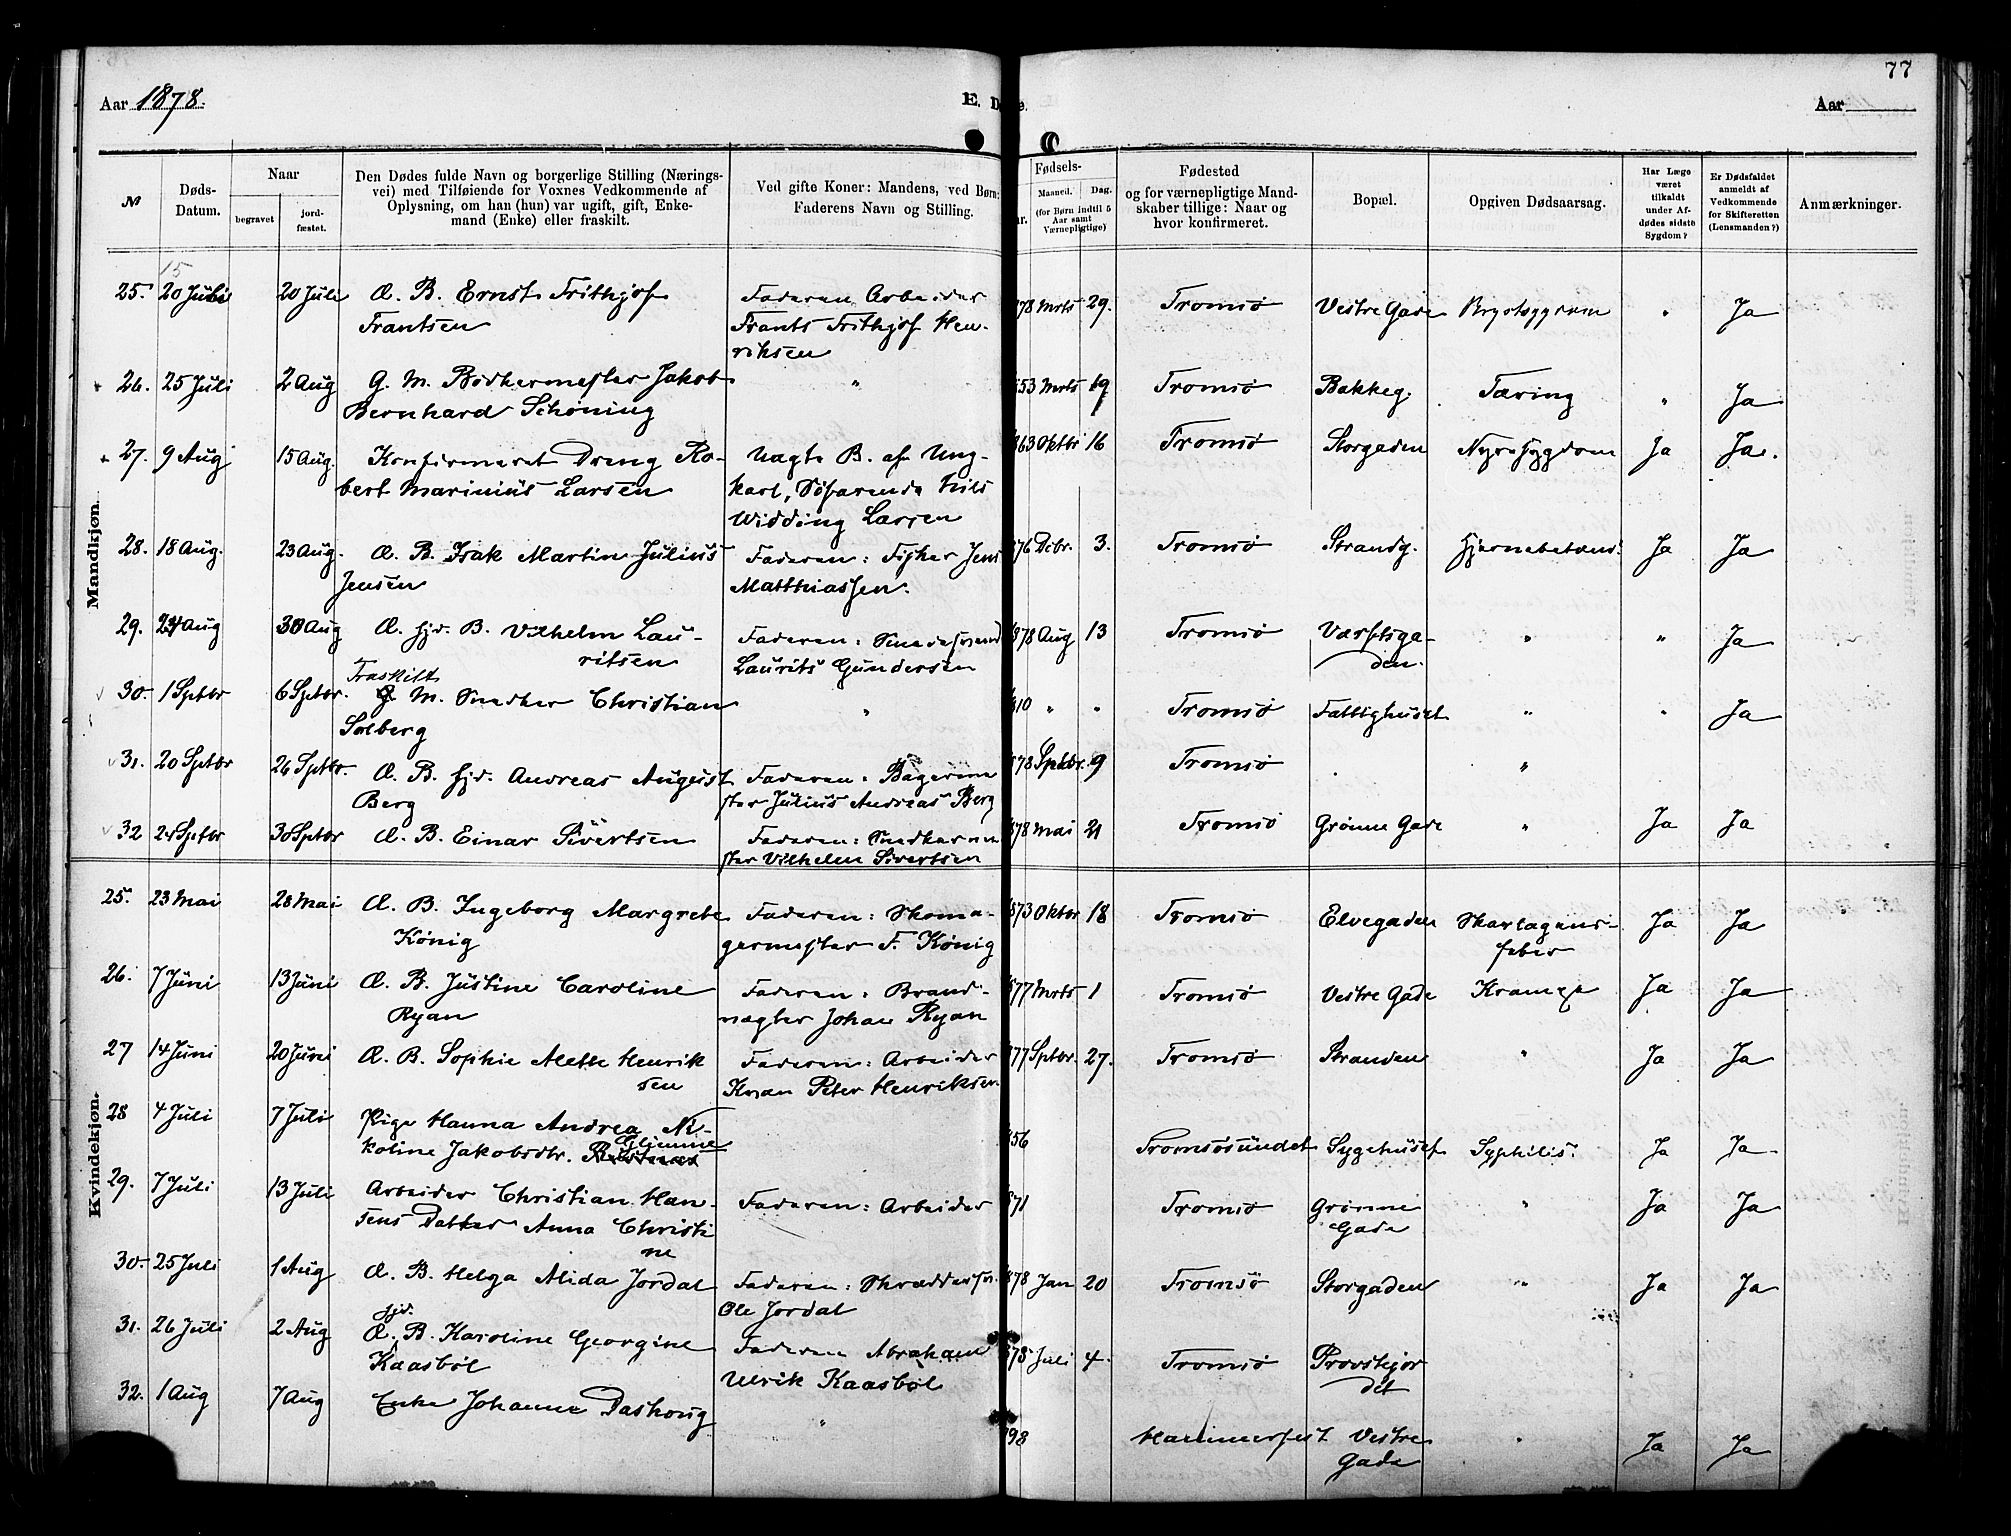 77
Aar 1878.
E. D
e.
Aar
№
Døds-
Datum.
Naar
begravet
jord-
fæstet.
Den Dødes fulde Navn og borgerlige Stilling (Nærings-
vei) med Tilføiende for Voxnes Vedkommende af
Oplysning, om han (hun) var ugift, gift, Enke-
mand (Enke) eller fraskilt.
Ved gifte Koner: Mandens, ved Børn:
Faderens Navn og Stilling.
Fødsels-
Maaned.
Dag.
(for Børn indtil 5
Aar samt
Værnepligtige)
Fødested
og for værnepligtige Mand-
skaber tillige: Naar og
hvor konfirmeret.
Bopæl.
Opgiven Dødsaarsag.
Har Læge
været
tilkaldt
under Af-
dødes sidste
Sygdom?
Er Dødsfaldet
anmeldt af
Vedkommende
for Skifteretten
(Lensmanden?)
Anmærkninger.
Mandkjøn.
15
25. 20 Juli 20 Juli Æ. B. Ernst Frithjof Faderen, Arbeider 78 Mrts 29. Tromsö Vestre Gade " Ja
Frantsen Frants Frithjof Hen-
riksen
26. 25 Juli 2 Aug G. M. Bödkermester Jakob " 53 Mrts 19 Tromsö Bakkeg. Tæring " Ja
Bernhard Schöning
27. 9 Aug 15 Aug. Konfirmeret Dreng Ro- Uægte B. af Ung- 63 Oktbr 16 Tromsö Storgaden Nyresygdom Ja Ja.
bert Marinius Larsen karl, Söfarende Nils
Widding Larsen
28. 18 Aug. 23 Aug. Æ. B. Isak Martin Julius Faderen: Fisker Jens 76 Dcbr. 3. Tromsö Strandg. Hjernebetænd. Ja Ja
Jensen Matthiassen.
29. 24 Aug 30 Aug Æ. hjd. B. Vilhelm Lau- Faderen: Smedesvend 878 Aug 13 Tromsö Værftsga- " " Ja
ritsen Laurits Gundersen den.
Fraskilt
30. 1 Sptbr 6 Sptbr. M. Snedker Christian " 10 " " Tromsö Fattighuset " " Ja
Solberg
31. 20 Sptbr 26 Sptbr. Æ. B. hjd. Andreas August Faderen: Bagerme 878 Sptbr. 9 Tromsö "
Berg ster Julius Andreas Berg
32 24 Sptbr 30 Sptbr Æ. B. Einar Sivertsen Faderen: Snedkerme 878 Mai 21 Tromsö Grönne Gade " Ja Ja
ster Vilhelm Sivertsen
Kvindekjøn.
25. 23 Mai 28 Mai Æ. B. Ingeborg Margrete Faderen: Skoma- 873 Oktbr 18 Tromsö Elvegaden Skarlagens- Ja Ja
König germester F. König feber
26. 7 Juni 13 Juni Æ. B. Justine Caroline Faderen: Brand- 877 Mrts 1 Tromsö Vestre Gade Krampe Ja Ja
Ryan vægter Johan Ryan
27 14 Juni 20 Juni Æ. B. Sophie Alette Henrik Faderen: Arbeider 77 Sptbr. 27. Tromsö Stranden " Ja Ja
sen Peter Henriksen
28 4 Juli 7 Juli Pige Hanna Andrea Ni- 56 Tromsösundet Sygehuset Syphilis. Ja Ja
koline Jakobsdtr.
29. 7 Juli 13 Juli Arbeider Christian Han- Faderen: Arbeider 871 Tromsö Grönne " Ja Ja
sens Datter Anna Christi Gade
ne
30. 25 Juli 1 Aug Æ. B. Helga Alida Jordal Faderen: Skrædder 878 Jan 20 Tromsö Storgaden " Ja Ja
Ole Jordal
hjd.
31. 26 Juli 2 Aug Æ. B. Karoline Georgine Faderen Abraham 878 Juli 4. Tromsö Provstejor
Kaasböl Ulrik Kaasböl det
32. 1 Aug 7 Aug Enke Johanne " 98 Hammerfest Vestre " Ja Ja
Gade